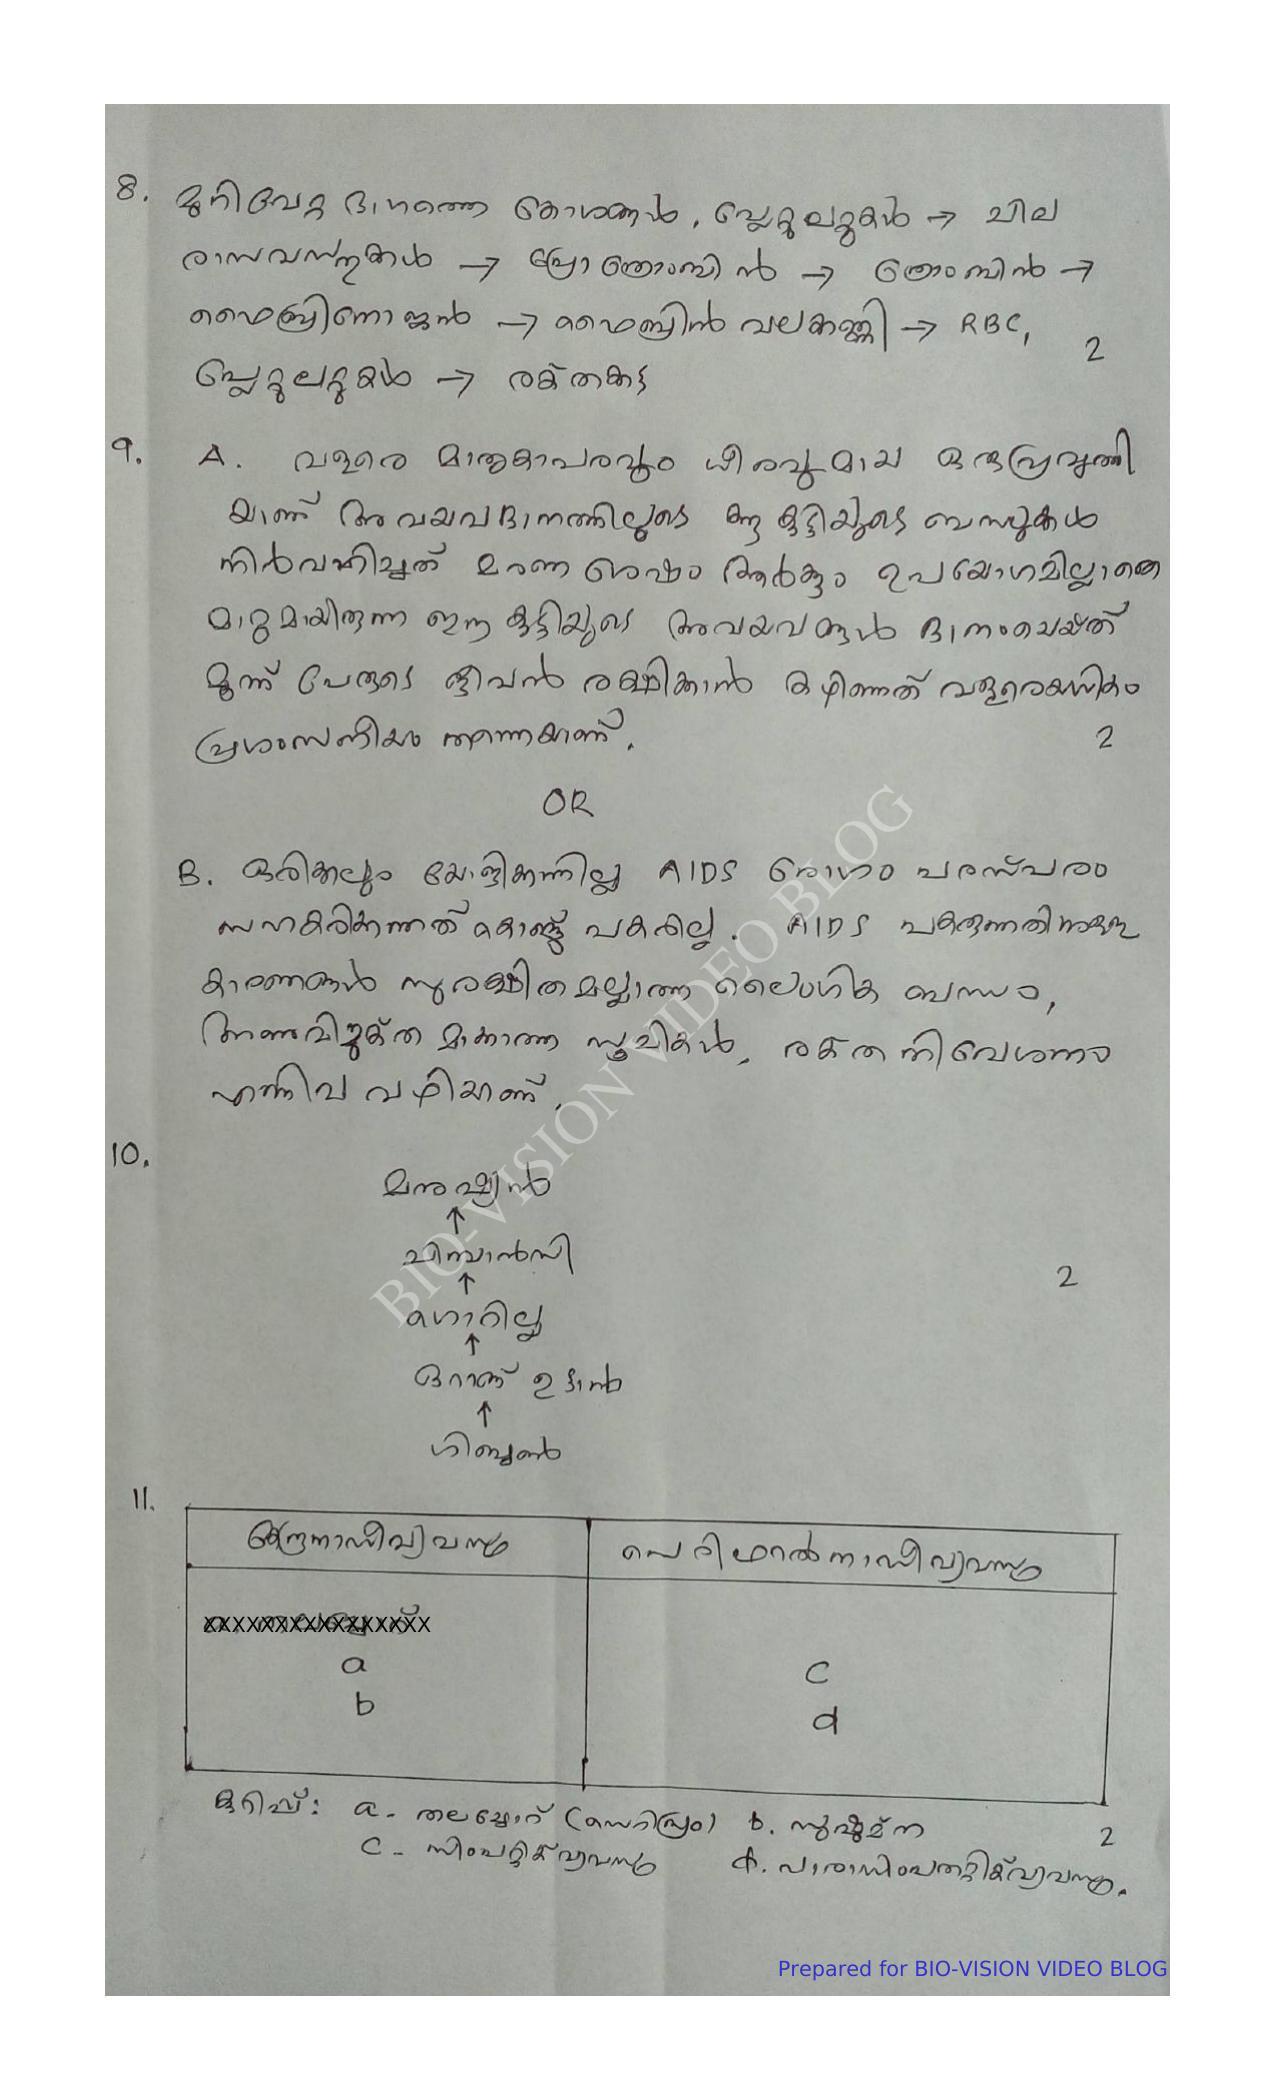 8. മുറിവേറ്റ ഭാഗത്തെ കോശങ്ങൾ, പ്ലേറ്റ്ലറ്റുകൾ → ചില
രാസവസ്തുക്കൾ → പ്രോത്രോംബിൻ → ത്രോംബിൻ →
ഫൈബ്രിനോജൻ → ഫൈബ്രിൻ വലക്കണ്ണി → RBC,
പ്ലേറ്റ്ലറ്റുകൾ → രക്തക്കട്ട 2
9. A. വളരെ മാതൃകാപരവും ധീരവുമായ ഒരു പ്രവൃത്തി
യാണ് അവയവദാനത്തിലൂടെ ഈ കുട്ടിയുടെ ബന്ധുക്കൾ
നിർവഹിച്ചത് മരണ ശേഷം ആർക്കും ഉപയോഗമില്ലാതെ
മാറുമായിരുന്ന ഈ കുട്ടിയുടെ അവയവങ്ങൾ ദാനംചെയ്ത്
മൂന്ന് പേരുടെ ജീവൻ രക്ഷിക്കാൻ കഴിഞ്ഞത് വളരെയധികം
പ്രശംസനീയം തന്നെയാണ്. 2
OR
B. ഒരിക്കലും യോജിക്കുന്നില്ല AIDS രോഗം പരസ്പരം
സഹകരിക്കുന്നത് കൊണ്ട് പകരില്ല. AIDS പകരുന്നതിനുള്ള
കാരണങ്ങൾ സുരക്ഷിതമല്ലാത്ത ലൈംഗിക ബന്ധം,
അണുവിമുക്തമാക്കാത്ത സൂചികൾ, രക്തനിവേശനം
എന്നിവ വഴിയാണ്.
10.
മനുഷ്യൻ
↑
ചിമ്പാൻസി
↑ 2
ഗൊറില്ല
↑
ഒറാങ് ഉട്ടാൻ
↑
ഗിബ്ബൺ
11.
കേന്ദ്രനാഡീവ്യവസ്ഥ പെരിഫറൽനാഡീവ്യവസ്ഥ
XXXXXXXXXXXXXXXX
a c
b d
കുറിപ്പ്: a - തലച്ചോറ് (സെറിബ്രം) b. സുഷുമ്ന
c - സിംപതറ്റിക് വ്യവസ്ഥ d. പാരാസിംപതറ്റിക് വ്യവസ്ഥ. 2
BIO-VISION VIDEO BLOG
Prepared for BIO-VISION VIDEO BLOG